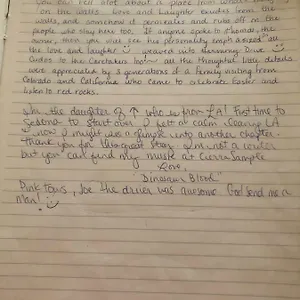 You can tell alot about a place from what's
on the walls. Love and Laughter exudes from the
walls, and somehow it permeates and rubs off on the
people who stay here too. If anyone spoke to the
owner, then you will see his personality
the love and laughter weaved into Harmony Drive.
Kudos to the Caretaker too all the thoughtful little details
were appreciated by 3 generations of a family visiting from
Colorado and California who came to celebrate Easter and
listen to red rocks.
I'm the daughter of ↑ who is from LA! First time to
Sedona to start over. I felt a calm leaving LA
& now I might use a glimpse into another chapter
Thank you for this great stay. I'm not a writer
but you can find my music at
Love,
"Dinosaur Blood"
Pink tours, Joe the driver was awesome. God send me a
man!